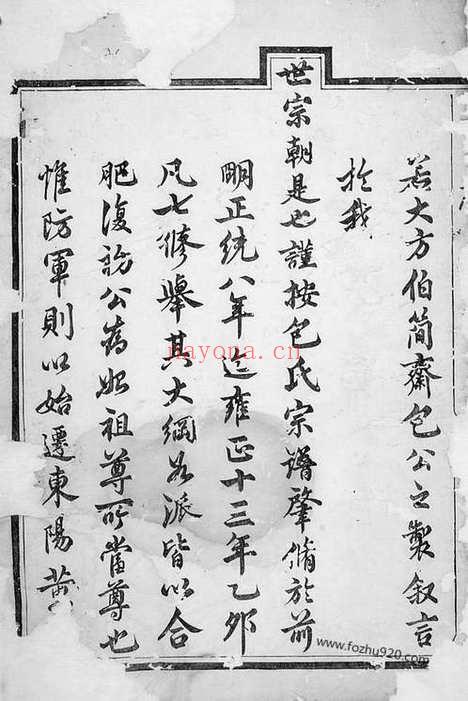 若大方伯簡齋包公之製叙言
於我
世宗朝是也謹按包氏宗譜肇脩於前
明正統八年迄雍正十三年乙卯
凡七修舉其大綱各派皆以合
肥復訪公為始祖尊所當尊也
惟防軍則以始遷東陽黃
nayona.cn
www.fozhu920.com